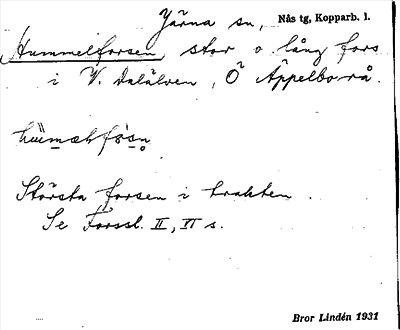 Järna sn, Nås tg, Kopparb. l.
Hummelforsen, stor o. lång fors
i V. Dalälven, Ö Äppelbo-rå.
Största forsen i trakten.
Se Forssl. II, VI s.
Bror Lindén 1931